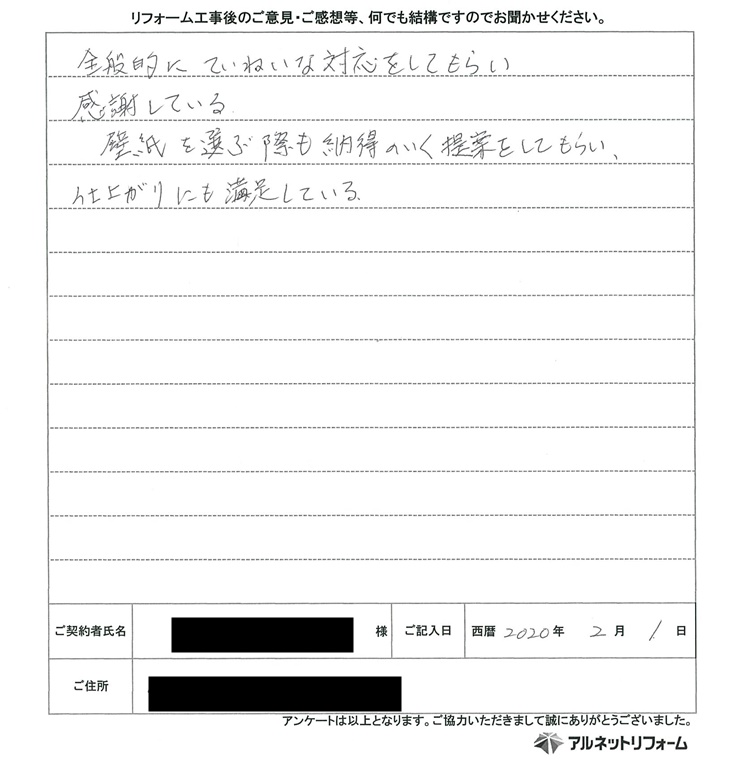 リフォーム工事後のご意見・ご感想等、何でも結構ですのでお聞かせください。
全般的に ていねいな対応をしてもらい
感謝している
壁紙を選ぶ際も納得のいく提案をしてもらい、
仕上がりにも満足している。
ご契約者氏名 様 ご記入日 西暦 2020年 2月 1日
ご住所
アンケートは以上となります。ご協力いただきまして誠にありがとうございました。
アルネットリフォーム